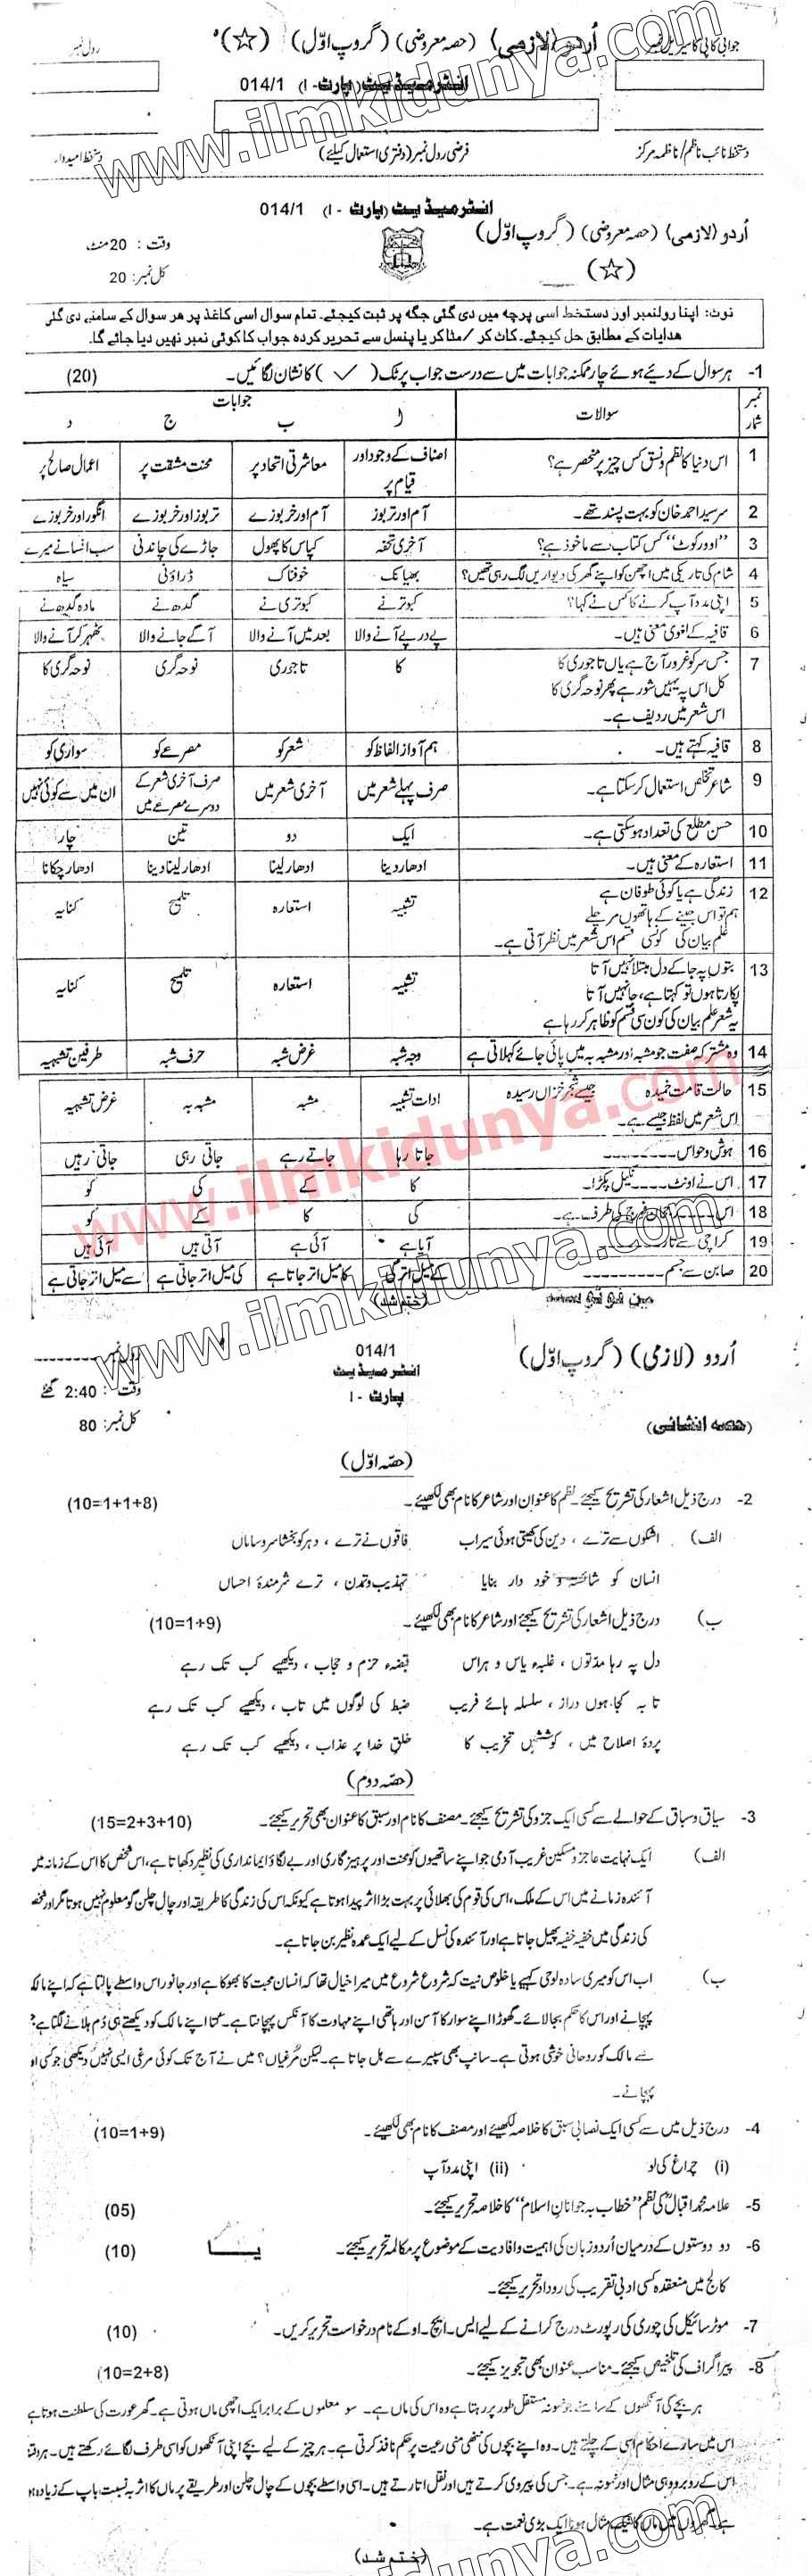 جوابی کاپی کا سیریل نمبر
اُردو (لازمی) (حصہ معروضی) (گروپ اوّل) (☆)
رول نمبر
انٹرمیڈیٹ (پارٹ - I) 014/1
دستخط نائب ناظم/ناظمہ مرکز
فرضی رول نمبر (دفتری استعمال کیلئے)
دستخط امیدوار
www.ilmkidunya.com
انٹرمیڈیٹ (پارٹ - I) 014/1
اردو (لازمی) (حصہ معروضی) (گروپ اوّل)
وقت: 20 منٹ
(☆)
کل نمبر: 20
نوٹ: اپنا رولنمبر اور دستخط اسی پرچہ میں دی گئی جگہ پر ثبت کیجئے۔ تمام سوال اسی کاغذ پر ہر سوال کے سامنے دی گئی
ہدایات کے مطابق حل کیجئے۔ کاٹ کر / مٹا کر یا پنسل سے تحریر کردہ جواب کا کوئی نمبر نہیں دیا جائے گا۔
1- ہر سوال کے دیئے ہوئے چار ممکنہ جوابات میں سے درست جواب پر ٹک (✓) کا نشان لگائیں۔ (20)
نمبر شمار سوالات جوابات
ا ب ج د
1 اس دنیا کا نظم و نسق کس چیز پر منحصر ہے؟ اصناف کے وجود اور قیام پر معاشرتی اتحاد پر محنت مشقت پر اعمال صالح پر
2 سر سید احمد خان کو بہت پسند تھے۔ آم اور تربوز آم اور خربوزے تربوز اور خربوزے انگور اور خربوزے
3 "اوورکوٹ" کس کتاب سے ماخوذ ہے؟ آخری تحفہ کپاس کا پھول جاڑے کی چاندنی سب افسانے میرے
4 شام کی تاریکی میں اچھن کو اپنے گھر کی دیواریں لگ رہی تھیں؟ بھیانک خوفناک ڈراؤنی سیاہ
5 اپنی مدد آپ کرنے کا کس نے کہا؟ کبوتر نے کبوتری نے گدھ نے مادہ گدھ نے
6 قافیہ کے لغوی معنی ہیں۔ پے در پے آنے والا بعد میں آنے والا آگے جانے والا ٹھہر کر آنے والا
7 جس سر کو غرور آج ہے یاں تاجوری کا کا تاجوری نوحہ گری نوحہ گری کا
کل اس پہ یہیں شور ہے پھر نوحہ گری کا
اس شعر میں ردیف ہے۔
8 قافیہ کہتے ہیں۔ ہم آواز الفاظ کو شعر کو مصرعے کو سواری کو
9 شاعر تخلص استعمال کر سکتا ہے۔ صرف پہلے شعر میں آخری شعر میں صرف آخری شعر کے دوسرے مصرعے میں ان میں سے کوئی نہیں
10 حسن مطلع کی تعداد ہو سکتی ہے۔ ایک دو تین چار
11 استعارہ کے معنی ہیں۔ ادھار دینا ادھار لینا ادھار لینا دینا ادھار چکانا
12 زندگی ہے یا کوئی طوفان ہے تشبیہ استعارہ تلمیح کنایہ
ہم تو اس جینے کے ہاتھوں مر چلے
علم بیان کی کونسی قسم اس شعر میں نظر آتی ہے۔
13 بتوں پہ جا کے دل مبتلا نہیں آتا تشبیہ استعارہ تلمیح کنایہ
پکارتا ہوں تو کہتا ہے، جا نہیں آتا
یہ شعر علم بیان کی کون سی قسم کو ظاہر کر رہا ہے
14 وہ مشترک صفت جو مشبہ اور مشبہ بہ میں پائی جائے کہلاتی ہے وجہ شبہ غرض شبہ حرف شبہ طرفین تشبیہہ
15 حالت قامت خمیدہ جیسے شجر خزاں رسیدہ ادات تشبیہ مشبہ مشبہ بہ غرض تشبیہہ
اس شعر میں لفظ جیسے ہے۔
16 ہوش و حواس ۔۔۔۔۔۔۔ جاتا رہا جاتے رہے جاتی رہی جاتی رہیں
17 اس نے اونٹ ۔۔۔۔ نکیل پکڑا۔ کا کے کی کو
18 اس ۔۔۔۔ طرف ہے۔ کی کا کے کو
19 کراچی سے تار ۔۔۔۔ آیا ہے آئی ہے آتی ہیں آئی ہیں
20 صابن سے جسم ۔۔۔۔۔۔ کا میل اتر جاتا ہے کی میل اتر جاتی ہے سے میل اتر جاتی ہے
(ختم شد)
www.ilmkidunya.com
www.ilmkidunya.com
اُردو (لازمی) (گروپ اوّل)
014/1
رول نمبر
انٹرمیڈیٹ
پارٹ - I
وقت: 2:40 گھنٹے
(حصہ انشائی)
کل نمبر: 80
(حصّہ اوّل)
2- درج ذیل اشعار کی تشریح کیجئے۔ نظم کا عنوان اور شاعر کا نام بھی لکھیئے۔ (10=1+1+8)
الف) اشکوں سے ترے، دین کی کھیتی ہوئی سیراب فاقوں نے ترے، دہر کو بخشا سروساماں
انسان کو شائستہ و خود دار بنایا تہذیب و تمدن، ترے شرمندۂ احساں
ب) درج ذیل اشعار کی تشریح کیجئے اور شاعر کا نام بھی لکھیئے۔ (10=1+9)
دل پہ رہا مدّتوں، غلبۂ یاس و ہراس قبضۂ حزم و حجاب، دیکھیے کب تک رہے
تا بہ کجا ہوں دراز، سلسلہ ہائے فریب ضبط کی لوگوں میں تاب، دیکھیے کب تک رہے
پردۂ اصلاح میں، کوششِ تخریب کا خلقِ خدا پر عذاب، دیکھیے کب تک رہے
(حصّہ دوم)
3- سیاق و سباق کے حوالے سے کسی ایک جزو کی تشریح کیجئے۔ مصنف کا نام اور سبق کا عنوان بھی تحریر کیجئے۔ (15=2+3+10)
الف) ایک نہایت عاجز و مسکین غریب آدمی جو اپنے ساتھیوں کو محنت اور پرہیز گاری اور بے لگاؤ ایمانداری کی نظیر دکھاتا ہے، اس شخص کا اس کے زمانہ میں
آئندہ زمانے میں اس کے ملک، اس کی قوم کی بھلائی پر بہت بڑا اثر پیدا ہوتا ہے کیونکہ اس کی زندگی کا طریقہ اور چال چلن گو معلوم نہیں ہوتا مگر اور
کی زندگی میں خفیہ خفیہ پھیل جاتا ہے اور آئندہ کی نسل کے لیے ایک عمدہ نظیر بن جاتا ہے۔
ب) اب اس کو میری سادہ لوحی کہیے یا خلوص نیت کہ شروع شروع میں میرا خیال تھا کہ انسان محبت کا بھوکا ہے اور جانور اس واسطے پالتا ہے کہ اپنے مالک
پہچانے اور اس کا حکم بجا لائے۔ گھوڑا اپنے سوار کا آسن اور ہاتھی اپنے مہاوت کا آنکس پہچانتا ہے۔ کتا اپنے مالک کو دیکھتے ہی دُم ہلانے لگتا ہے
سے مالک کو روحانی خوشی ہوتی ہے۔ سانپ بھی سپیرے سے ہل جاتا ہے۔ لیکن مُرغیاں؟ میں نے آج تک کوئی مرغی ایسی نہیں دیکھی جو کسی
پہچانے۔
4- درج ذیل میں سے کسی ایک نصابی سبق کا خلاصہ لکھیئے اور مصنف کا نام بھی لکھیئے۔ (10=1+9)
(i) چراغ کی لو (ii) اپنی مدد آپ
5- علامہ محمد اقبالؒ کی نظم "خطاب بہ جوانانِ اسلام" کا خلاصہ تحریر کیجئے۔ (05)
6- دو دوستوں کے درمیان اُردو زبان کی اہمیت و افادیت کے موضوع پر مکالمہ تحریر کیجئے۔ یا (10)
کالج میں منعقدہ کسی ادبی تقریب کی روداد تحریر کیجئے۔
7- موٹر سائیکل کی چوری کی رپورٹ درج کرانے کے لیے ایس۔ ایچ۔ او کے نام درخواست تحریر کریں۔ (10)
8- پیراگراف کی تلخیص کیجئے۔ مناسب عنوان بھی تجویز کیجئے۔ (10=2+8)
ہر بچے کی آنکھوں کے سامنے جو نمونہ مستقل طور پر رہتا ہے وہ اس کی ماں ہے۔ سو معلموں کے برابر ایک اچھی ماں ہوتی ہے۔ گھر عورت کی سلطنت ہوتا ہے
اس میں سارے احکام اسی کے چلتے ہیں۔ وہ اپنے بچوں کی ننھی منی رعیت پر حکم نافذ کرتی ہے۔ ہر چیز کے لیے بچے اپنی آنکھوں کو اسی طرف لگائے رکھتے ہیں۔
اس کے روبرو وہی مثال اور نمونہ ہے۔ جس کی پیروی کرتے ہیں اور نقل اتارتے ہیں۔ اسی واسطے بچوں کے چال چلن اور طریقے پر ماں کا اثر بہ نسبت باپ کے زیادہ
ہے۔ گھروں میں ماں کا نیک مثال ہونا ایک بڑی نعمت ہے۔
(ختم شد)
www.ilmkidunya.com